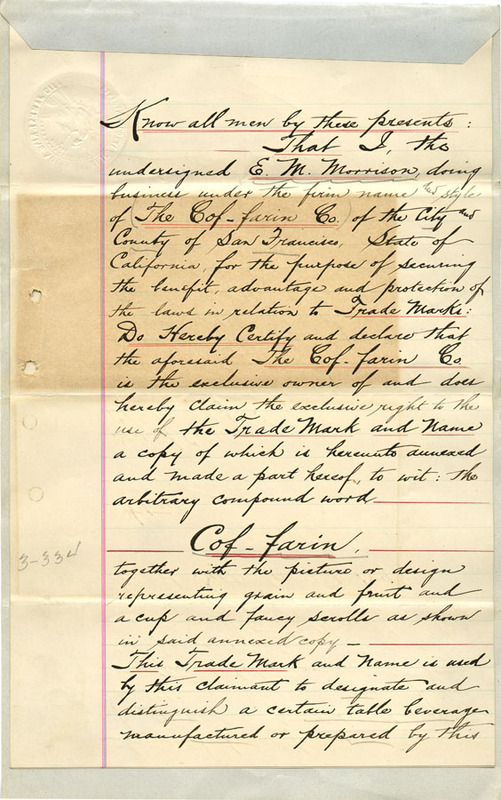 Know all men by these presents:
That I, the
undersigned E. M. Morrison, doing
business under the firm name and style
of The Cof-farin Co. of the City and
County of San Francisco, State of
California, for the purpose of securing
the benefit, advantage and protection of
the laws in relation to Trade Marks:
Do Hereby Certify and declare that
the aforesaid The Cof-farin Co
is the exclusive owner of and does
hereby claim the exclusive right to the
use of the Trade Mark and Name
a copy of which is hereunto annexed
and made a part hereof, to wit: the
arbitrary compound word
Cof-farin,
3-334
together with the picture or design
representing grain and fruit and
a cup and fancy scrolls as shown
in said annexed copy—
This Trade Mark and Name is used
by this claimant to designate and
distinguish a certain table beverage
manufactured or prepared by this